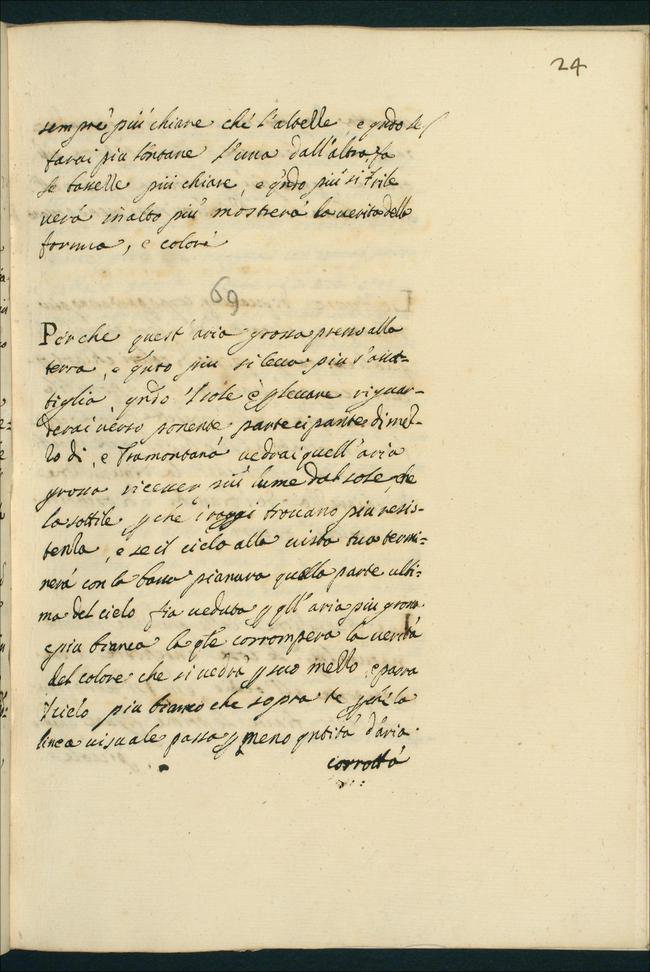 24
sempre più chiare che l'altelle, e qndo le
farai piu lontane l'una dall'altra, fa
le basselle più chiare, e qndo più si
verà in alto più mostrerà la verità delle
forma, e colori
69
Perche quest'aria grossa presso alla
terra, e qnto piu si leva piu s'asot-
tiglia, qndo 'l sole è p levare riguar-
derai verso ponente partecipante di mez-
zo di, e Tramontana vedrai quell'aria
grossa ricever più lume dal sole, che
la sottile pchè i raggi trovano piu resis-
tenza, e se il cielo alla vista tua termi-
nerà con la bassa pianura quella parte ulti-
ma del cielo fia veduta p qll'aria piu grossa
e piu bianca la qle corromperà la verità
del colore che si vedrà p suo mezzo, e parrà
'l cielo piu bianco che sopra te pchè la
linea visuale passa p meno qntità d'aria
corrotta